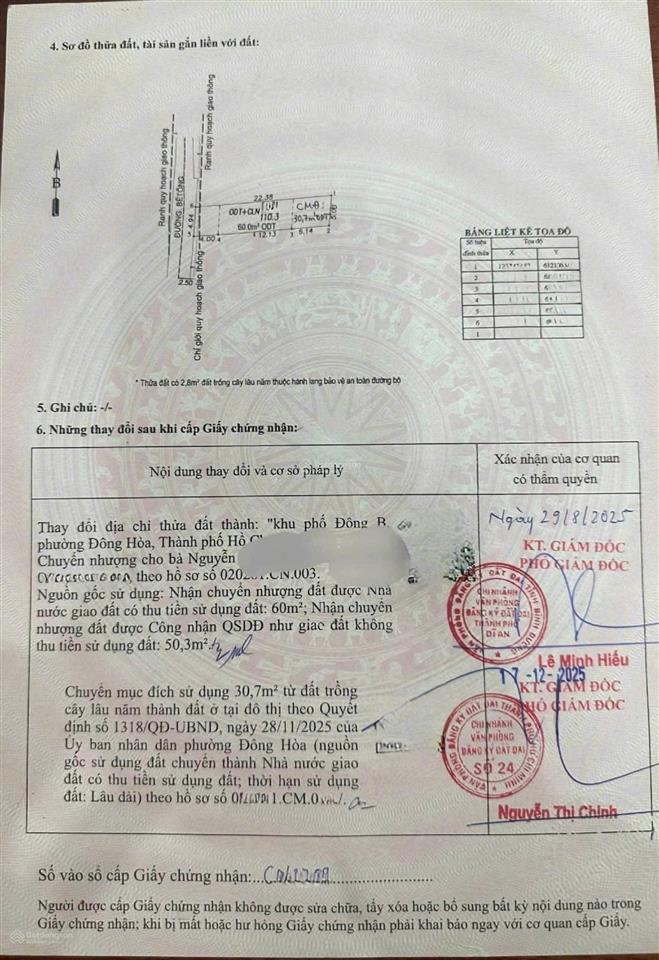 4. Sơ đồ thửa đất, tài sản gắn liền với đất:
B
Ranh quy hoạch giao thông
ĐƯỜNG BÊTÔNG
Ranh quy hoạch giao thông
Chỉ giới quy hoạch giao thông
22.38
ODT+CLN
110.3
60.0m² ODT
CMĐ
30,7m² ODT
5.00
4.94
4.00
12.13
6.14
2.50
1
2
3
4
5
6
BẢNG LIỆT KÊ TOẠ ĐỘ
Số hiệu đỉnh thửa
Tọa độ
X
Y
1
2
3
4
5
6
1
* Thửa đất có 2,8m² đất trồng cây lâu năm thuộc hành lang bảo vệ an toàn đường bộ
5. Ghi chú: -/-
6. Những thay đổi sau khi cấp Giấy chứng nhận:
Nội dung thay đổi và cơ sở pháp lý
Xác nhận của cơ quan
có thẩm quyền
Thay đổi địa chỉ thửa đất thành: "khu phố Đông
phường Đông Hòa, Thành phố Hồ
Chuyển nhượng cho bà Nguyễn
theo hồ sơ số
Nguồn gốc sử dụng: Nhận chuyển nhượng đất được Nhà
nước giao đất có thu tiền sử dụng đất: 60m²; Nhận chuyển
nhượng đất được Công nhận QSDĐ như giao đất không
thu tiền sử dụng đất: 50,3m².
Ngày 29/8/2025
KT. GIÁM ĐỐC
PHÓ GIÁM ĐỐC
VĂN PHÒNG ĐĂNG KÝ ĐẤT ĐAI TỈNH BÌNH DƯƠNG
CHI NHÁNH
VĂN PHÒNG
ĐĂNG KÝ ĐẤT ĐAI
THÀNH PHỐ
DĨ AN
Lê Minh Hiếu
Chuyển mục đích sử dụng 30,7m² từ đất trồng
cây lâu năm thành đất ở tại đô thị theo Quyết
định số 1318/QĐ-UBND, ngày 28/11/2025 của
Ủy ban nhân dân phường Đông Hòa (nguồn
gốc sử dụng đất chuyển thành Nhà nước giao
đất có thu tiền sử dụng đất; thời hạn sử dụng
đất: Lâu dài) theo hồ sơ số
17-12-2025
KT. GIÁM ĐỐC
PHÓ GIÁM ĐỐC
VĂN PHÒNG ĐĂNG KÝ ĐẤT ĐAI THÀNH PHỐ HỒ CHÍ MINH
CHI NHÁNH
VĂN PHÒNG
ĐĂNG KÝ ĐẤT ĐAI
SỐ 24
Nguyễn Thị Chinh
Số vào sổ cấp Giấy chứng nhận:
Người được cấp Giấy chứng nhận không được sửa chữa, tẩy xóa hoặc bổ sung bất kỳ nội dung nào trong
Giấy chứng nhận; khi bị mất hoặc hư hỏng Giấy chứng nhận phải khai báo ngay với cơ quan cấp Giấy.
Batdongsan